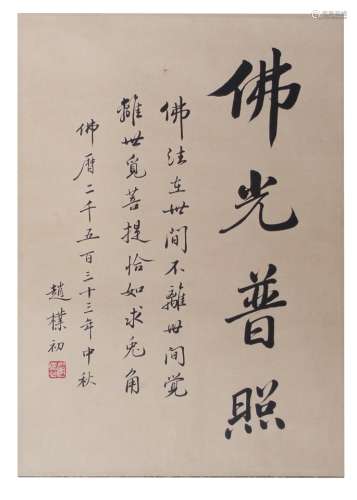 佛光普照
佛法在世間不離世間覚
離世覓菩提恰如求兎角
佛曆二千五百三十三年中秋
趙樸初